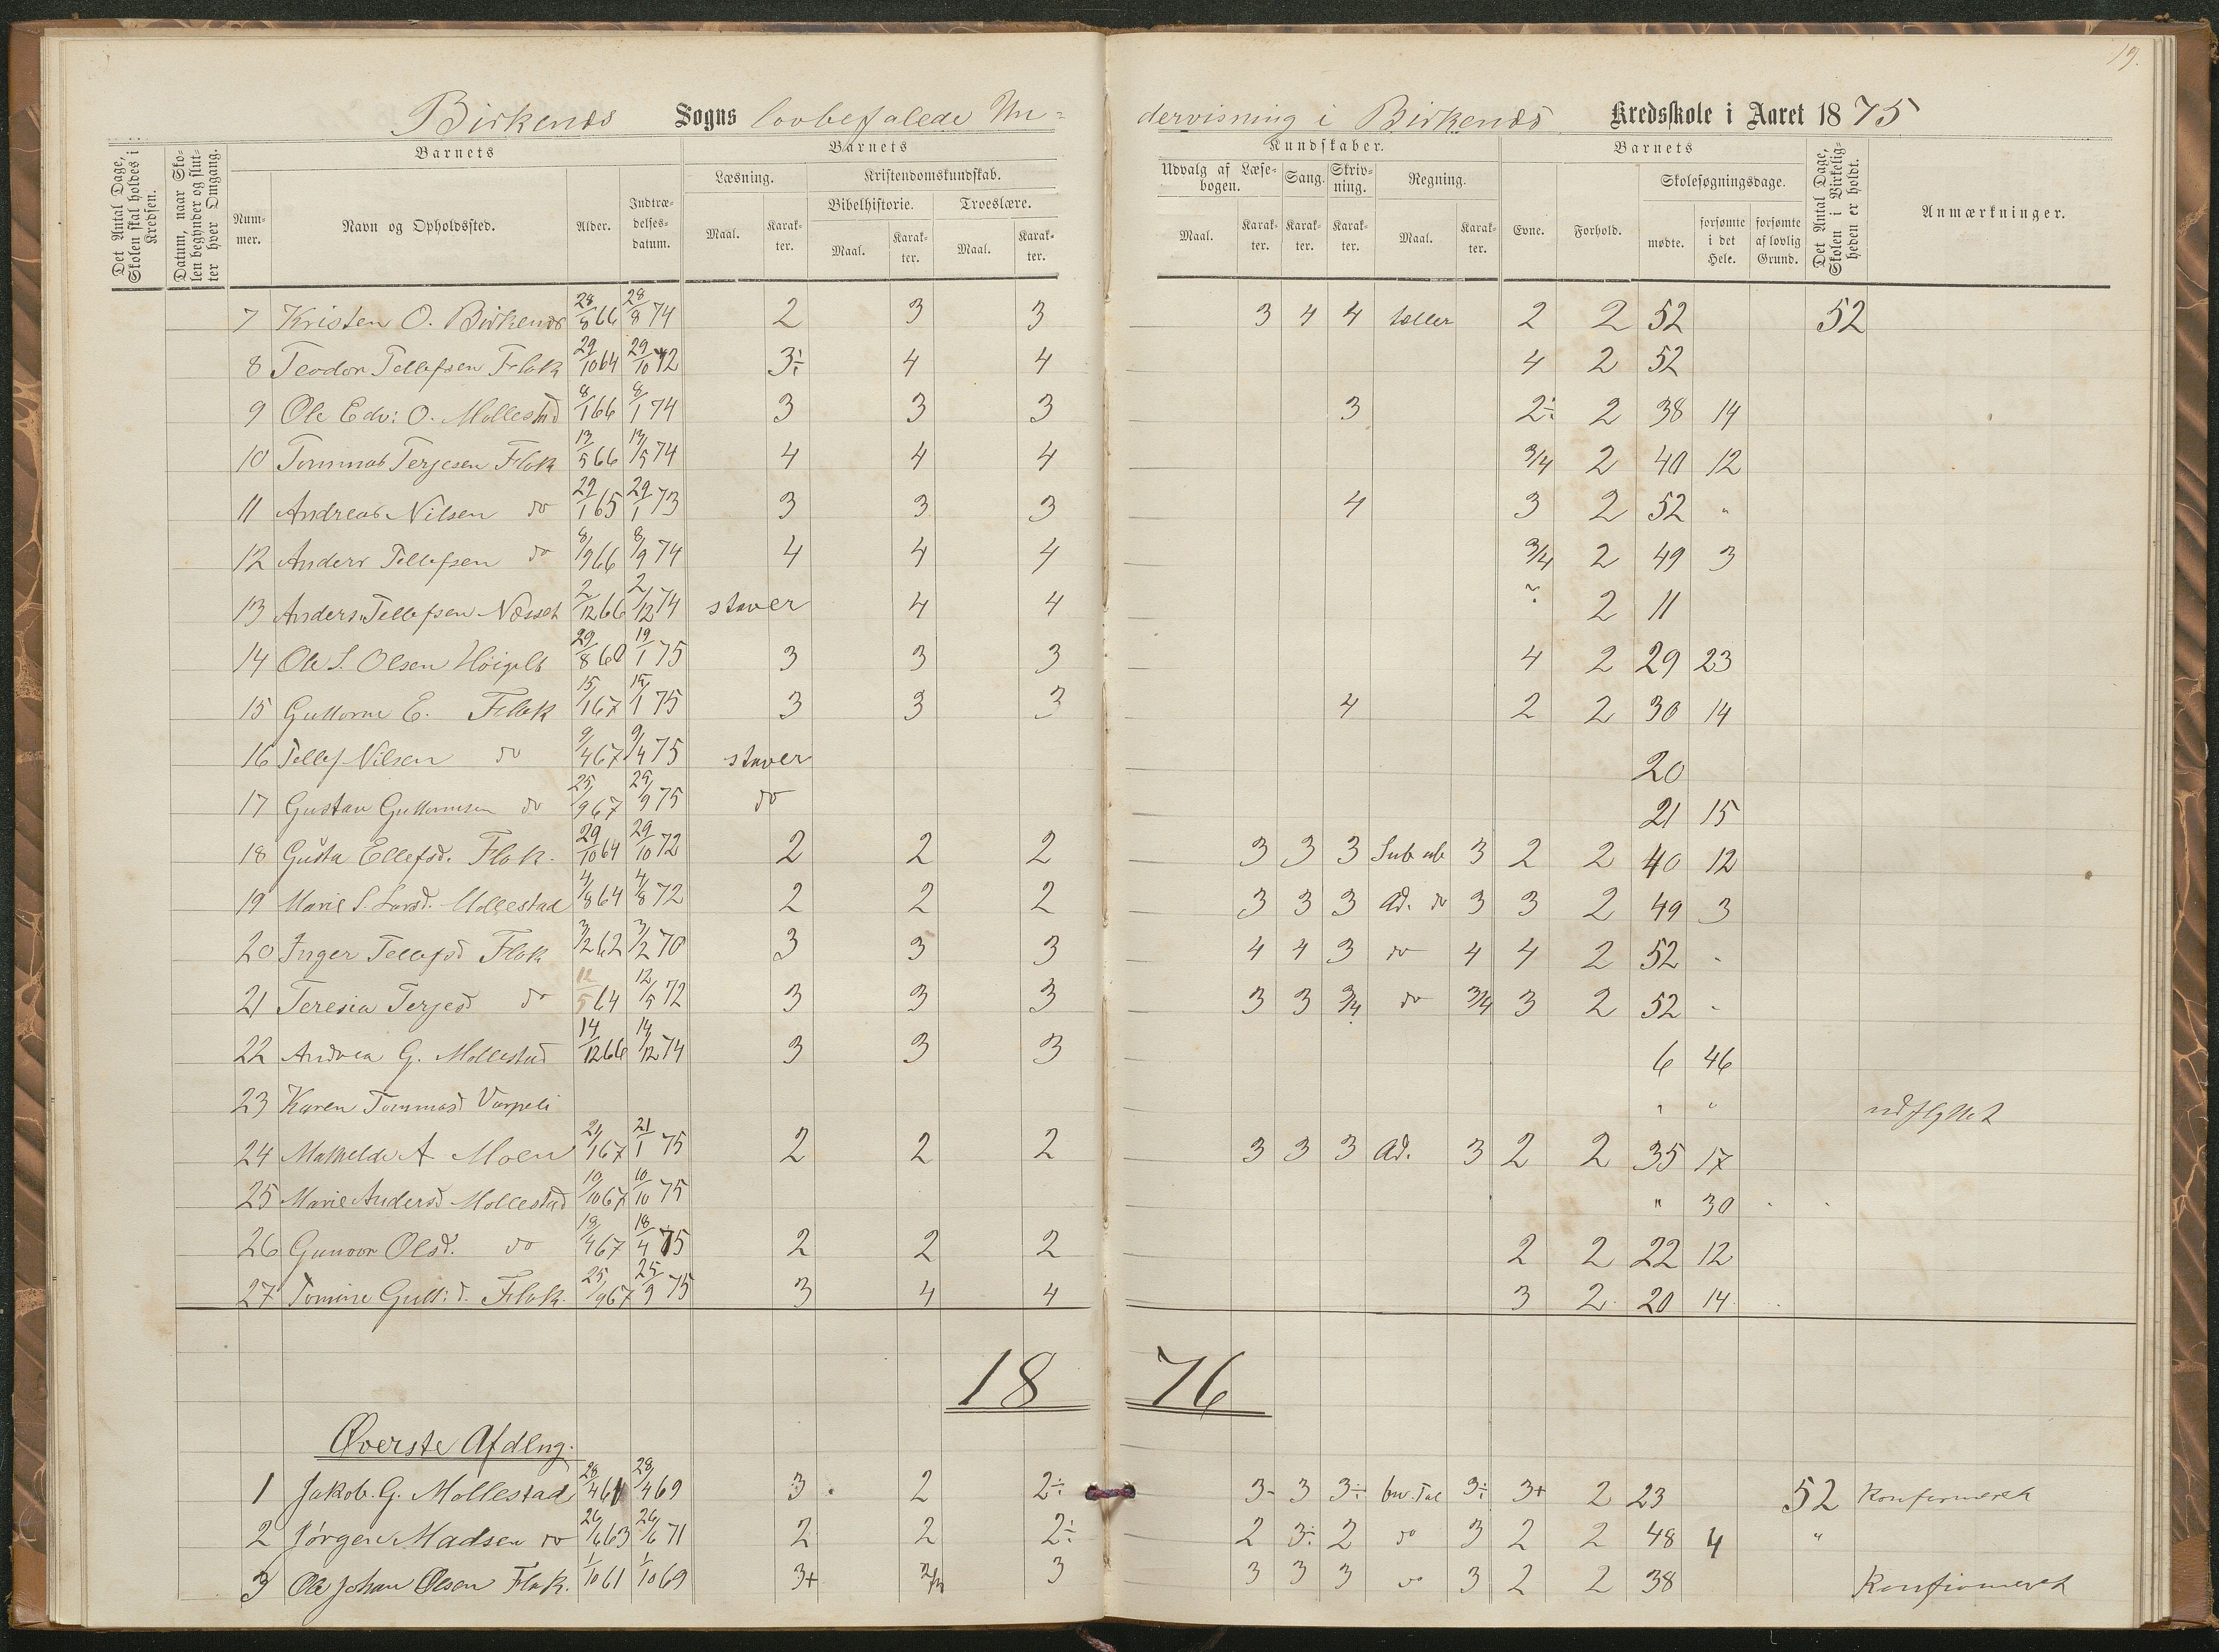 19.
Birkenes Sogns lovbefalede Un= dervisning i Birkenes Kredsskole i Aaret 1875
Det Antal Dage, Skolen skal holdes i Kredsen.
Datum, naar Skolen begynder og slutter hver Omgang.
Barnets
Nummer.
Navn og Opholdssted.
Alder.
Indtrædelsesdatum.
Barnets
Læsning.
Maal.
Karakter.
Kristendomskundskab.
Bibelhistorie.
Maal.
Karakter.
Troeslære.
Maal.
Karakter.
Kundskaber.
Udvalg af Læsebogen.
Maal.
Karakter.
Sang.
Karakter.
Skrivning.
Karakter.
Regning.
Maal.
Karakter.
Barnets
Evne.
Forhold.
Skolesøgningsdage.
mødte.
forsømte i det Hele.
forsømte af lovlig Grund.
Det Antal Dage, Skolen i Virkeligheden er holdt.
Anmærkninger.
7 Kristen O. Birkenes 28/8 66 28/8 74 2 3 3 3 4 4 tæller 2 2 52 52
8 Teodor Tellefsen Flak 29/10 64 29/10 72 3÷ 4 4 4 2 52
9 Ole Edv: O. Mollestad 8/1 66 8/1 74 3 3 3 3 2÷ 2 38 14
10 Tommas Terjesen Flak 13/5 66 13/5 74 4 4 4 3/4 2 40 12
11 Andreas Nilsen do 29/1 65 29/1 73 3 3 3 4 3 2 52 "
12 Anders Tellefsen do 8/9 66 8/9 74 4 4 4 3/4 2 49 3
13 Anders Tellefsen Næset 2/12 66 2/12 74 staver 4 4 ? 2 11
14 Ole S. Olsen 29/8 60 19/1 75 3 3 3 4 2 29 23
15 Guttorm E. Flak 15/1 67 15/1 75 3 3 3 4 2 2 30 14
16 Tellef Nilsen do 9/4 67 9/4 75 staver 20
17 Gustav Guttormsen do 25/9 67 25/9 75 do 21 15
18 Gusta Ellefsd. Flak. 29/10 64 29/10 72 2 2 2 3 3 3 Sub ub 3 2 2 40 12
19 Marie S. Larsd. Mollestad 4/8 64 4/8 72 2 2 2 3 3 3 Ad. do 3 3 2 49 3
20 Inger Tellefsd Flak 3/2 62 3/2 70 3 3 3 4 4 3 do 4 4 2 52 "
21 Teresia Terjesd do 12/5 64 12/5 72 3 3 3 3 3 3/4 do 3/4 3 2 52 "
22 Andrea G. Mollestad 14/12 66 14/12 74 3 3 3 6 46
23 Karen Tommasd Varpeli " " udflyttet
24 Mathelde A Moen 21/1 67 21/1 75 2 2 2 3 3 3 Ad. 3 2 2 35 17
25 Marie Andersd Mollestad 10/10 67 10/10 75 " 30
26 Gunvor Olsd. do 18/4 67 18/4 75 2 2 2 2 2 22 12
27 Tomine Gutt:d. Flak. 25/9 67 25/9 75 3 4 4 3 2 20 14
18 76
Øverste Afdlng.
1 Jakob. G. Mollestad 28/4 61 28/4 69 3 2 2÷ 3- 3 3÷ 3÷ 3+ 2 23 52 Konfirmeret
2 Jørgen Madsen do 26/6 63 26/6 71 2 2 2÷ 2 3÷ 2 do 3 2 2 48 4 "
3 Ole Johan Olsen Flak. 1/10 61 1/10 69 3+ 2/3 3 3 3 3 do 3 2 2 38 Konfirmeret